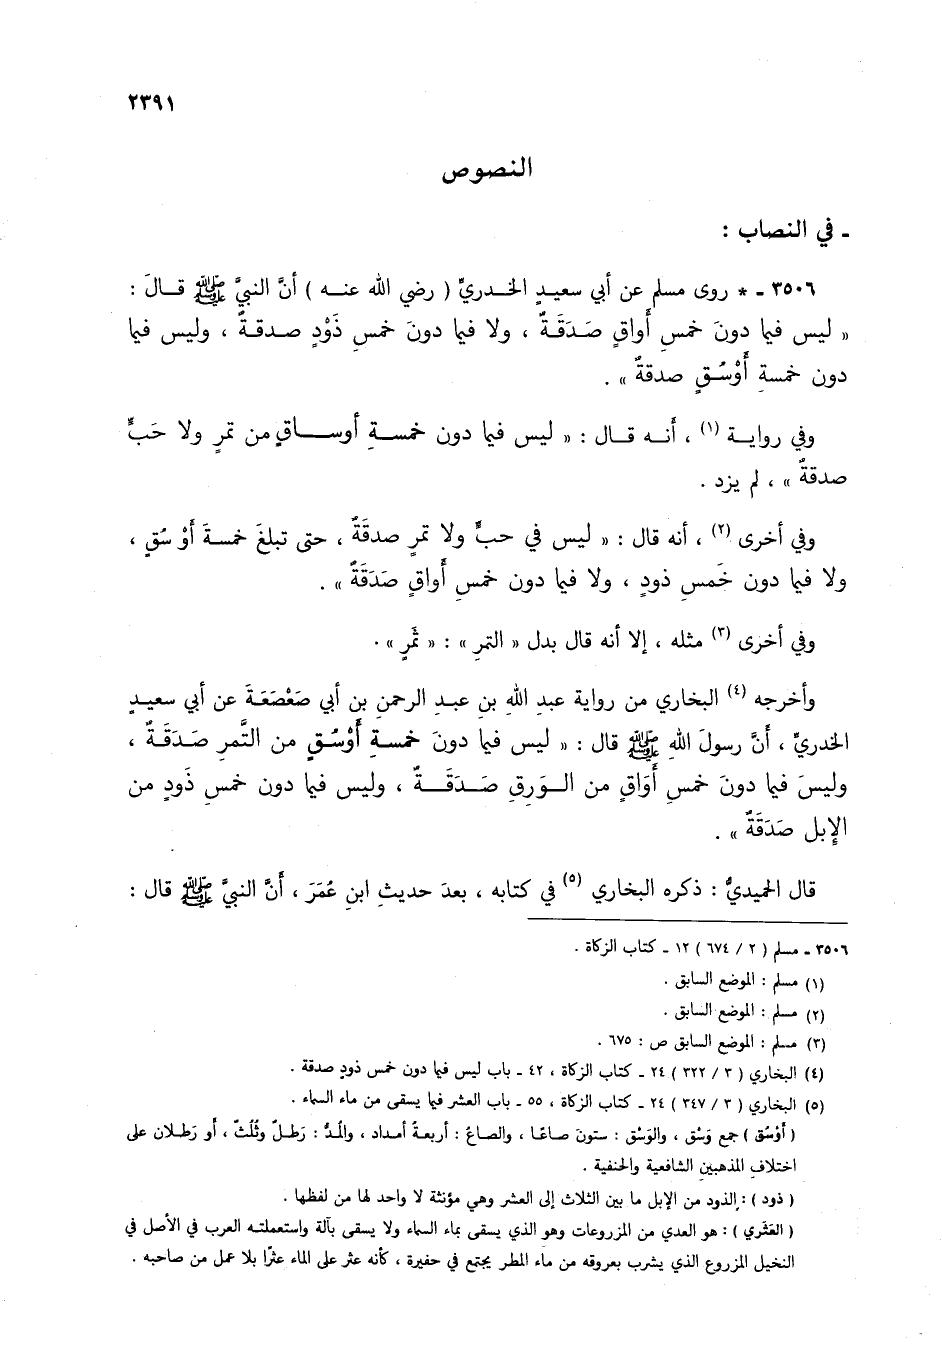 ٢٣٩١
النصوص
ـ في النصاب :
٣٥٠٦ ـ * روى مسلم عن أبي سعيدٍ الخـدريِّ ( رضي الله عنـه ) أنَّ النبيَّ ﷺ قـالَ :
« ليس فيما دونَ خمسِ أَواقٍ صَـدَقَـةٌ ، ولا فيما دونَ خمسِ ذَوْدٍ صدقـةٌ ، وليس فيما
دون خمسةِ أَوْسُـقٍ صدقةٌ » .
وفي روايـة (١) ، أنـه قـال : « ليس فيما دون خمسـةِ أوسـاقٍ من تمرٍ ولا حَبٍّ
صدقةٌ » ، لم يزد .
وفي أخرى (٢) ، أنه قال : « ليس في حبٍّ ولا تمرٍ صدقَةٌ ، حتى تبلغَ خمسـةَ أَوْسُقٍ ،
ولا فيما دون خَمسِ ذودٍ ، ولا فيما دون خمسِ أَواقٍ صَدَقَةٌ » .
وفي أخرى (٣) مثله ، إلا أنه قال بدل « التمرِ » : « ثَمرٍ » .
وأخرجه (٤) البخاري من رواية عبدِ اللهِ بن عبـدِ الرحمنِ بنِ أبي صَعْصَعَةَ عن أبي سعيـدٍ
الخدريِّ ، أنَّ رسولَ اللهِ ﷺ قال : « ليس فيما دونَ خمسـةِ أَوْسُـقٍ من التَّمرِ صَـدَقَـةٌ ،
وليسَ فيما دونَ خمسِ أَوَاقٍ من الـوَرِقِ صَـدَقَـةٌ ، وليس فيما دون خمسِ ذَودٍ من
الإبلِ صَدَقَةٌ » .
قال الحميديُّ : ذكره البخاري (٥) في كتابه ، بعدَ حديثِ ابنِ عُمَرَ ، أنَّ النبيَّ ﷺ قال :
٣٥٠٦ ـ مسلم ( ٢ / ٦٧٤ ) ١٢ ـ كتاب الزكاة .
(١) مسلم : الموضع السابق .
(٢) مسلم : الموضع السابق .
(٣) مسلم : الموضع السابق ص : ٦٧٥ .
(٤) البخاري ( ٣ / ٣٢٢ ) ٢٤ ـ كتاب الزكاة ، ٤٢ ـ باب ليس فيما دون خمس ذودٍ صدقة .
(٥) البخاري ( ٣ / ٣٤٧ ) ٢٤ ـ كتاب الزكاة ، ٥٥ ـ باب العشر فيما يسقى من ماء السماء .
( أَوْسُق ) جمع وَسْق ، والوَسْق : ستون صاعًا ، والصاعُ : أربعـةُ أمداد ، والمدُّ : رَطـلٌ وثُلُثٌ ، أو رَطـلان على
اختلافِ المذهبينِ الشافعية والحنفية .
( ذود ) : الذود من الإبل ما بين الثلاث إلى العشر وهي مؤنثة لا واحد لها من لفظها .
( العَثَري ) : هو العدي من المزروعات وهو الذي يسقى بماء السماء ولا يسقى بآلة واستعملتـه العرب في الأصل في
النخيل المزروع الذي يشرب بعروقه من ماء المطر يجتمع في حفيرة ، كأنه عثر على الماء عثرًا بلا عمل من صاحبه .